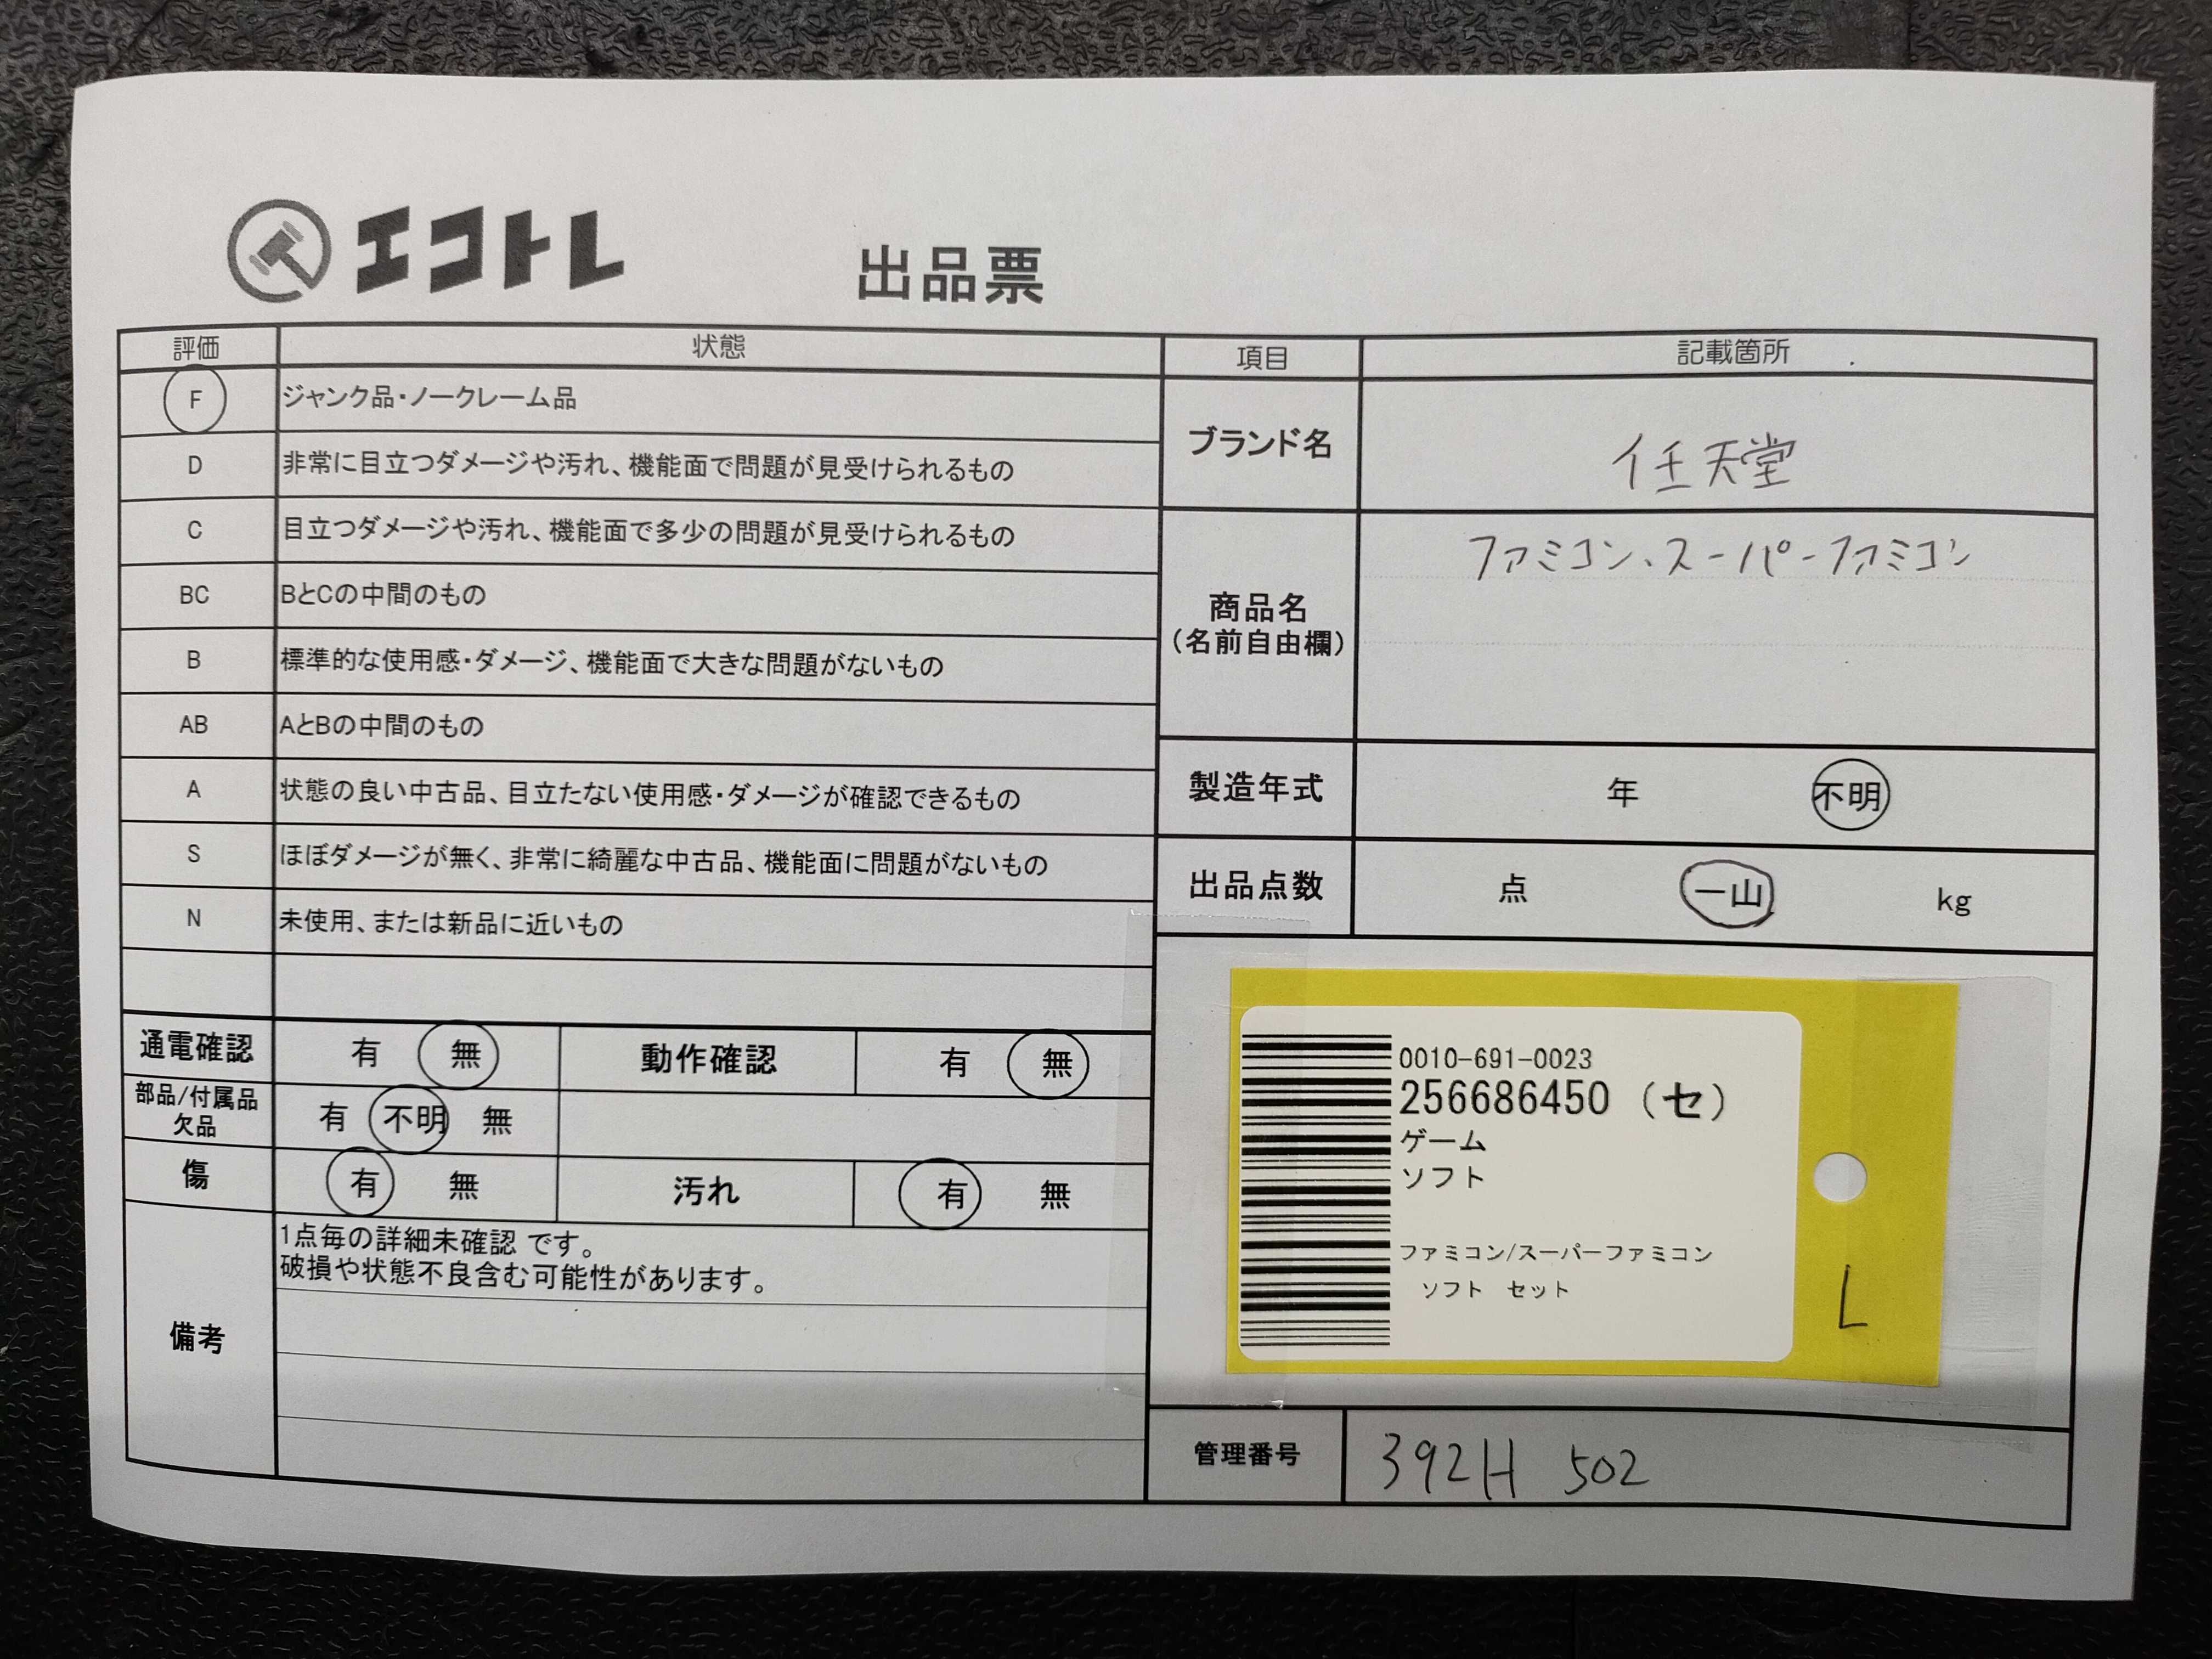 エコトレ 出品票
評価 状態
F ジャンク品・ノークレーム品
D 非常に目立つダメージや汚れ、機能面で問題が見受けられるもの
C 目立つダメージや汚れ、機能面で多少の問題が見受けられるもの
BC BとCの中間のもの
B 標準的な使用感・ダメージ、機能面で大きな問題がないもの
AB AとBの中間のもの
A 状態の良い中古品、目立たない使用感・ダメージが確認できるもの
S ほぼダメージが無く、非常に綺麗な中古品、機能面に問題がないもの
N 未使用、または新品に近いもの
通電確認 有 無 動作確認 有 無
部品/付属品
欠品 有 不明 無
傷 有 無 汚れ 有 無
備考
1点毎の詳細未確認 です。
破損や状態不良含む可能性があります。
項目 記載箇所
ブランド名 任天堂
商品名
(名前自由欄)
ファミコン、スーパーファミコン
製造年式 年 不明
出品点数 点 一山 kg
0010-691-0023
256686450 (セ)
ゲーム
ソフト
ファミコン/スーパーファミコン
ソフト セット
L
管理番号 392H 502